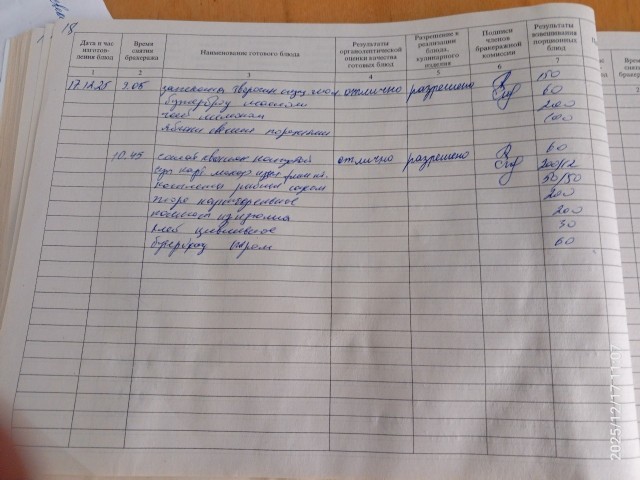 18
Дата и час изготовления блюд
Время снятия бракеража
Наименование готового блюда
Результаты органолептической оценки качества готовых блюд
Разрешение к реализации блюда, кулинарного изделия
Подписи членов бракеражной комиссии
Результаты взвешивания порционных блюд
1 2 3 4 5 6 7
17.12.25 9.05 запеканка творожн сгущ мол отлично разрешено 150
бутерброд маслом 60
чай лимоном 200
яблоки свежие порционно 100
10.45 салат квашен капустой отлично разрешено 60
суп карт макар издел 200/12
котлета рыбная соусом 50/50
пюре картофельное 200
компот из изюма 200
хлеб 30
бутерброд сыром 60
2025/12/17 11:07